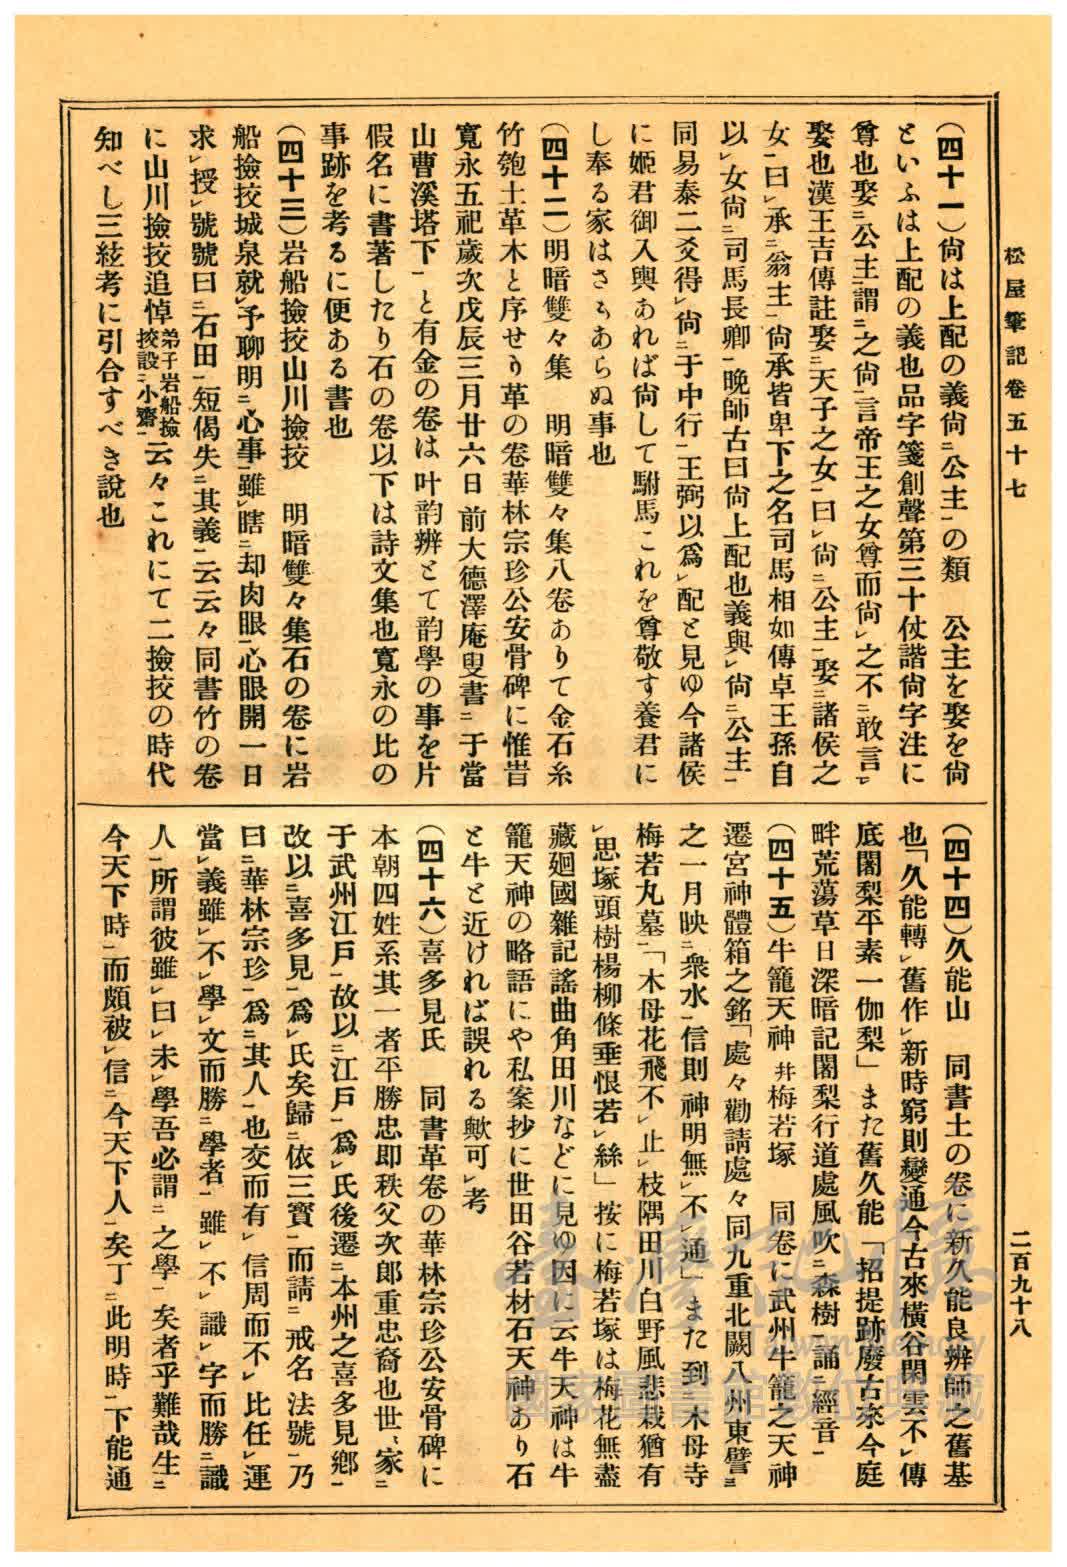 松屋筆記卷五十七
二百九十八
(四十一)尙は上配の義尙ニ公主一の類　公主を娶を尙
といふは上配の義也品字箋創聲第三十仗諧尙字注に
尊也娶ニ公主一謂ニ之尙一言帝王之女尊而尙レ之不ニ敢言レ
娶也漢王吉傳註娶ニ天子之女一曰レ尙ニ公主一娶ニ諸侯之
女一曰レ承ニ翁主一尙承皆卑下之名司馬相如傳卓王孫自
以レ女尙ニ司馬長卿一晚師古曰尙上配也義與レ尙ニ公主一
同易泰二爻得レ尙ニ于中行一王弼以爲レ配と見ゆ今諸侯
に姬君御入輿あれば尙して駙馬これを尊敬す養君に
し奉る家はさもあらぬ事也
(四十二)明暗雙々集　明暗雙々集八卷ありて金石糸
竹匏土革木と序せり革の卷華林宗珍公安骨碑に惟旹
寬永五祀歲次戊辰三月廿六日前大德澤庵叟書ニ于當
山曹溪塔下一と有金の卷は叶韵辨とて韵學の事を片
假名に書著したり石の卷以下は詩文集也寬永の比の
事跡を考るに便ある書也
(四十三)岩船撿挍山川撿挍　明暗雙々集石の卷に岩
船撿挍城泉就レ予聊明ニ心事一雖レ瞎ニ却肉眼一心眼開一日
求レ授レ號號曰ニ石田一短偈失ニ其義一云云々同書竹の卷
に山川撿挍追悼弟子岩船撿挍設ニ小齋一云々これにて二撿挍の時代
知べし三絃考に引合すべき說也
(四十四)久能山　同書土の卷に新久能良辨師之舊基
也「久能轉レ舊作レ新時窮則變通今古來橫谷閑雲不レ傳
底闍梨平素一伽梨」また舊久能「招提跡廢古來今庭
畔荒蕩草日深暗記闍梨行道處風吹ニ森樹一誦ニ經音一
(四十五)牛籠天神幷梅若塚　同卷に武州牛籠之天神
遷宮神體箱之銘「處々勸請處々同九重北闕八州東譬ニ
之一月映ニ衆水一信則神明無レ不レ通」また到ニ木母寺
梅若丸墓一「木母花飛不レ止レ枝隅田川白野風悲栽猶有
レ思塚頭樹楊柳條垂恨若レ絲」按に梅若塚は梅花無盡
藏廻國雜記謠曲角田川などに見ゆ因に云牛天神は牛
籠天神の略語にや私案抄に世田谷若材石天神あり石
と牛と近ければ誤れる歟可レ考
(四十六)喜多見氏　同書革卷の華林宗珍公安骨碑に
本朝四姓系其一者平勝忠即秩父次郎重忠裔也世、家ニ
于武州江戶一故以ニ江戶一爲レ氏後遷ニ本州之喜多見鄕一
改以ニ喜多見一爲レ氏矣歸ニ依三寳一而請ニ戒名法號一乃
曰ニ華林宗珍一爲ニ其人一也交而有レ信周而不レ比任レ運
當レ義雖レ不レ學レ文而勝ニ學者一雖レ不レ識レ字而勝ニ識
人一所謂彼雖レ曰レ未レ學吾必謂ニ之學一矣者乎難哉生ニ
今天下時一而頗被レ信ニ今天下人一矣丁ニ此明時一下能通
臺灣記憶
Taiwan Memory
國家圖書館數位典藏